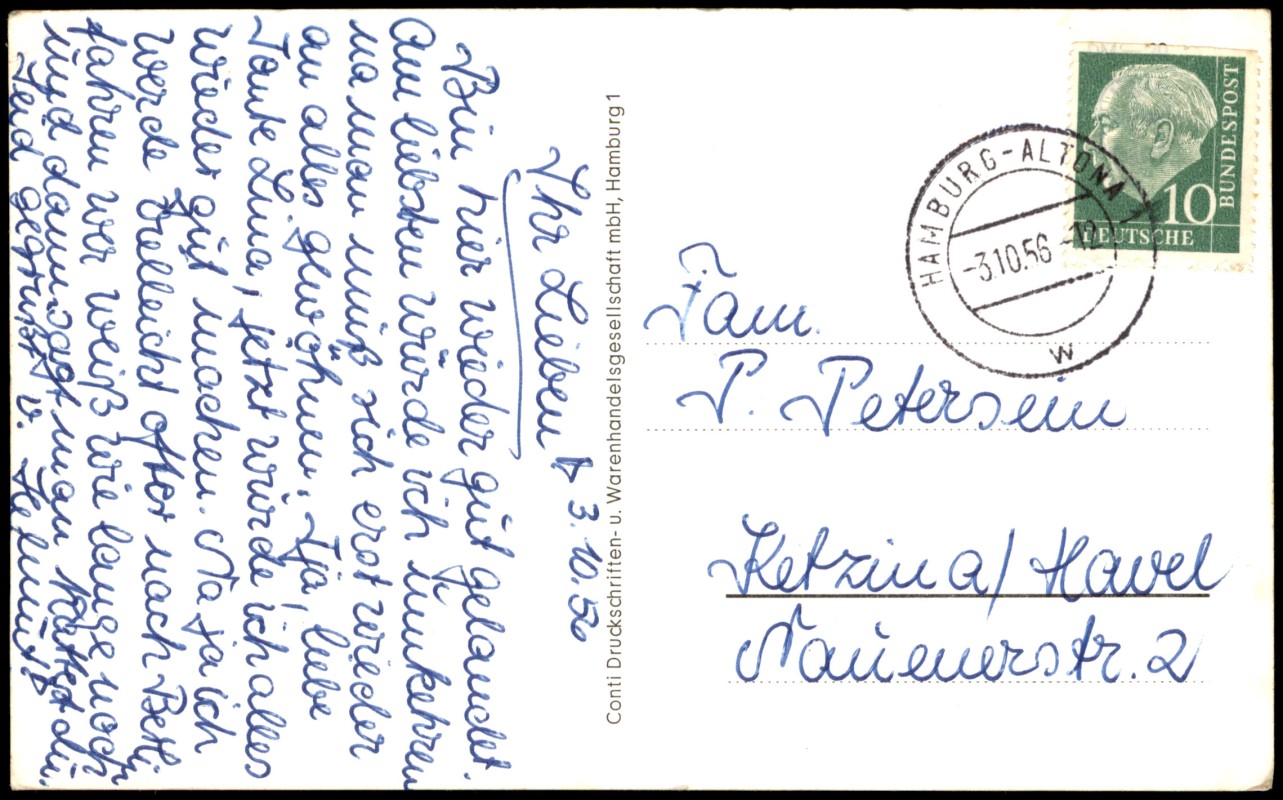 Ihr Lieben! 3.10.56
Bin hier wieder gut gelandet.
Am liebsten würde ich umkehren
na man muß sich erst wieder
an alles gewöhnen. Tja, liebe
Tante Lina, jetzt würde ich alles
wieder gut machen. Na ja ich
werde vielleicht öfter nach Berli
fahren wer weiß wie lange noch
und dann sagt man hättest du.
Seid gegrüßt v. Helmut
Conti Druckschriften- u. Warenhandelsgesellschaft mbH, Hamburg 1
BUNDESPOST
10
DEUTSCHE
HAMBURG-ALTONA 1
-3.10.56-12
w
Fam.
P. Petersein
Ketzin a/Havel
Nauenerstr. 2